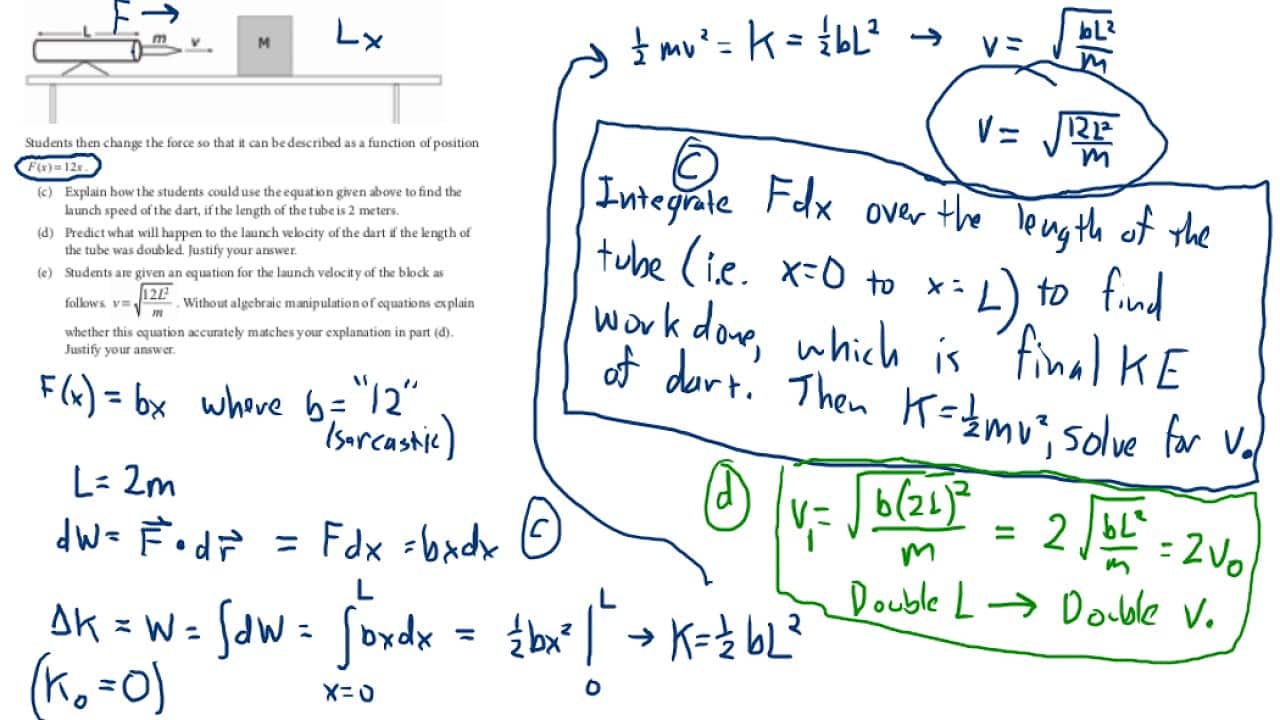 F →
L
m
v
M
Lx
Students then change the force so that it can be described as a function of position
F(x)=12x.
(c) Explain how the students could use the equation given above to find the
launch speed of the dart, if the length of the tube is 2 meters.
(d) Predict what will happen to the launch velocity of the dart if the length of
the tube was doubled. Justify your answer.
(e) Students are given an equation for the launch velocity of the block as
follows. v=√(12L²/m). Without algebraic manipulation of equations explain
whether this equation accurately matches your explanation in part (d).
Justify your answer.
F(x) = bx where b= "12"
(sarcastic)
L= 2m
dW= F⃗ • dr⃗ = Fdx =bxdx (C)
ΔK = W = ∫dW = ∫ₓ₌₀ᴸ bxdx = ½bx² |₀ᴸ → K=½bL²
(K₀=0)
½mv² = K = ½bL² → v= √(bL²/m)
v= √(12L²/m)
(C)
Integrate Fdx over the length of the
tube (i.e. x=0 to x=L) to find
work done, which is final KE
of dart. Then K=½mv², solve for v.
(d) v₁= √(b(2L)²/m) = 2√(bL²/m) = 2v₀
Double L → Double v.